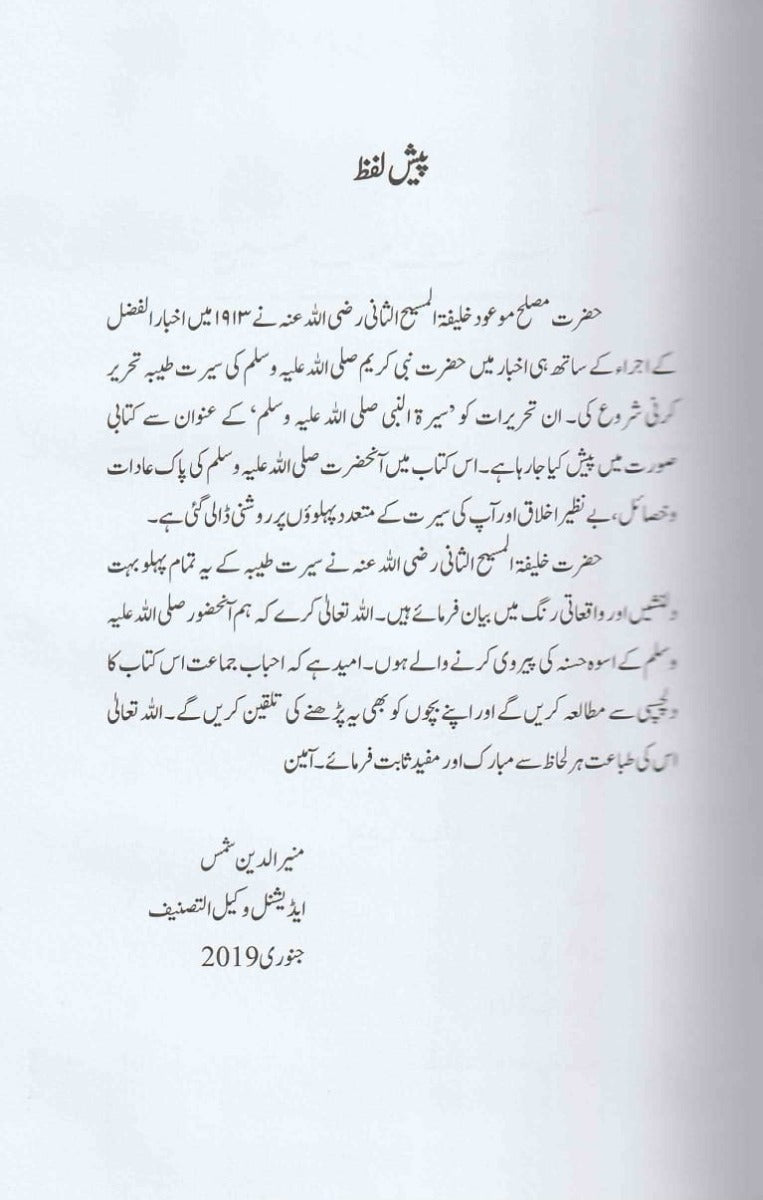 پیش لفظ
حضرت مصلح موعود خلیفۃ المسیح الثانی رضی اللہ عنہ نے ۱۹۱۳ میں اخبار الفضل
کے اجراء کے ساتھ ہی اخبار میں حضرت نبی کریم صلی اللہ علیہ وسلم کی سیرت طیبہ تحریر
کرنی شروع کی۔ ان تحریرات کو ’سیرۃ النبی صلی اللہ علیہ وسلم‘ کے عنوان سے کتابی
صورت میں پیش کیا جا رہا ہے۔ اس کتاب میں آنحضرت صلی اللہ علیہ وسلم کی پاک عادات
و خصائل، بے نظیر اخلاق اور آپ کی سیرت کے متعدد پہلوؤں پر روشنی ڈالی گئی ہے۔
حضرت خلیفۃ المسیح الثانی رضی اللہ عنہ نے سیرت طیبہ کے یہ تمام پہلو بہت
دلنشیں اور واقعاتی رنگ میں بیان فرمائے ہیں۔ اللہ تعالیٰ کرے کہ ہم آنحضور صلی اللہ علیہ
وسلم کے اسوہ حسنہ کی پیروی کرنے والے ہوں۔ امید ہے کہ احباب جماعت اس کتاب کا
دلچسپی سے مطالعہ کریں گے اور اپنے بچوں کو بھی یہ پڑھنے کی تلقین کریں گے۔ اللہ تعالیٰ
اس کی طباعت ہر لحاظ سے مبارک اور مفید ثابت فرمائے۔ آمین
منیر الدین شمس
ایڈیشنل وکیل التصنیف
جنوری 2019